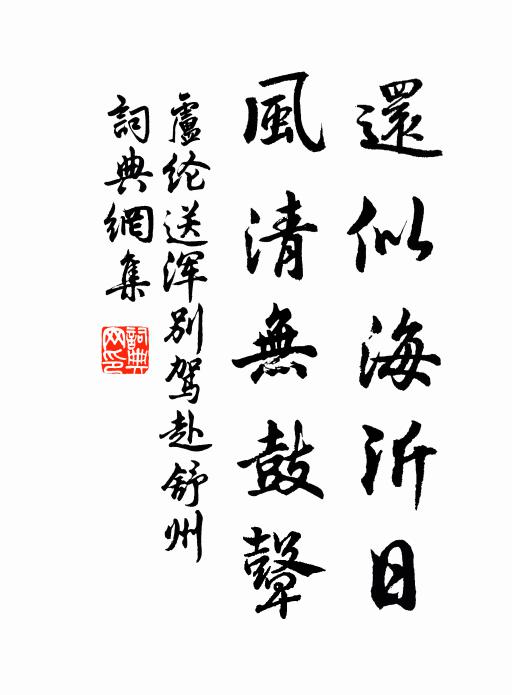 還似海沂日
風清無鼓鼙
盧纶送浑别駕赴舒州
詞典網集
詞典
网印